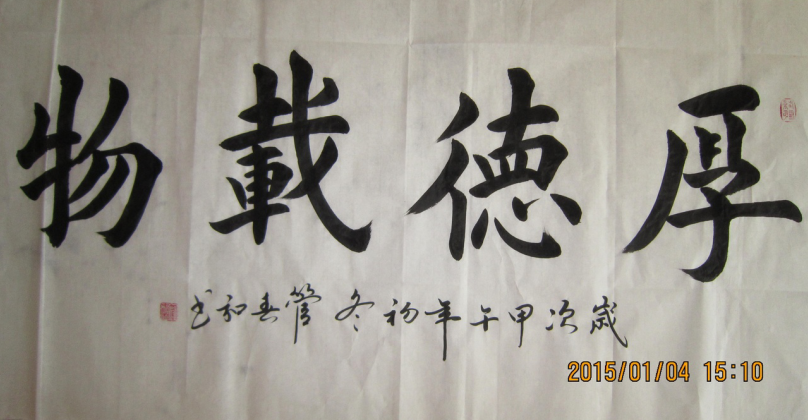 厚德載物
歲次甲午年初冬管春和书
2015/01/04 15:10